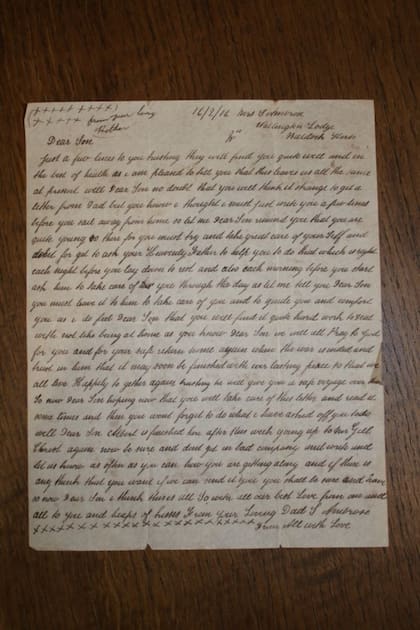 (+ + + + + + + +)
+ + + + + from your loving Mother
16/2/16 Mrs S Ambrose
Lodge
Baldock Herts
Dear Son
Just a few lines to you trusting they will find you quite well and in
the best of health as i am pleased to tell you that this leaves us all the same
at present well Dear Son no doubt that you will think it strange to get a
letter from Dad but you know i thought i must just wish you a few lines
before you sail away from home so let me Dear Son remind you that you are
quite young so there for you must try and take great care of your self and
dont for get to ask your Heavenly Father to help you to do that which is right
each night before you lay down to rest and also each morning before you start
ask him to take care of you through the day as let me tell you Dear Son
you must leave it to him to take care of you and to guide you and comfort
you as i do feel Dear Son that you will find it quite hard work to deal
with not like being at home as you know Dear Son we will all Pray to God
for you and for your safe return home again when the war is ended and
trust in him that it may soon be finished with ever lasting peace so that we
all live Happily to gether again trusting he will give you a safe voyage over
So now Dear Son hoping now that you will take care of this letter and read it
some times and then you wont forget to do what i have asked off you to do
well Dear Son Albert is finished here after this week going up to
again now be sure and dont get in bad company and write and
let us know as often as you can how you are getting along and if there is
any think that you want if we can send it you you shall be sure and have
so now Dear Son i think this is all So with all our best Love from one and
all to you and heaps of kisses From your Loving Dad S Ambrose
+ + + + + + + + + + + + + + + + + + + + From All with Love